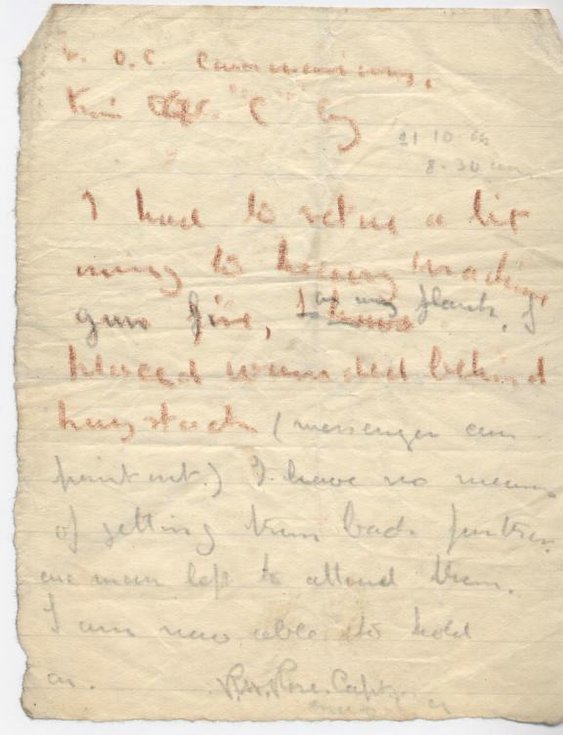 O.C. Cameronians,
C Coy
21 10
8.30 am
I had to retire a bit
owing to heavy machine
gun fire, on my flank. I
placed wounded behind
haystack (messenger can
point out.) I have no means
of getting them back further.
one man left to attend them.
I am now able to hold
on. Rose. Capt.